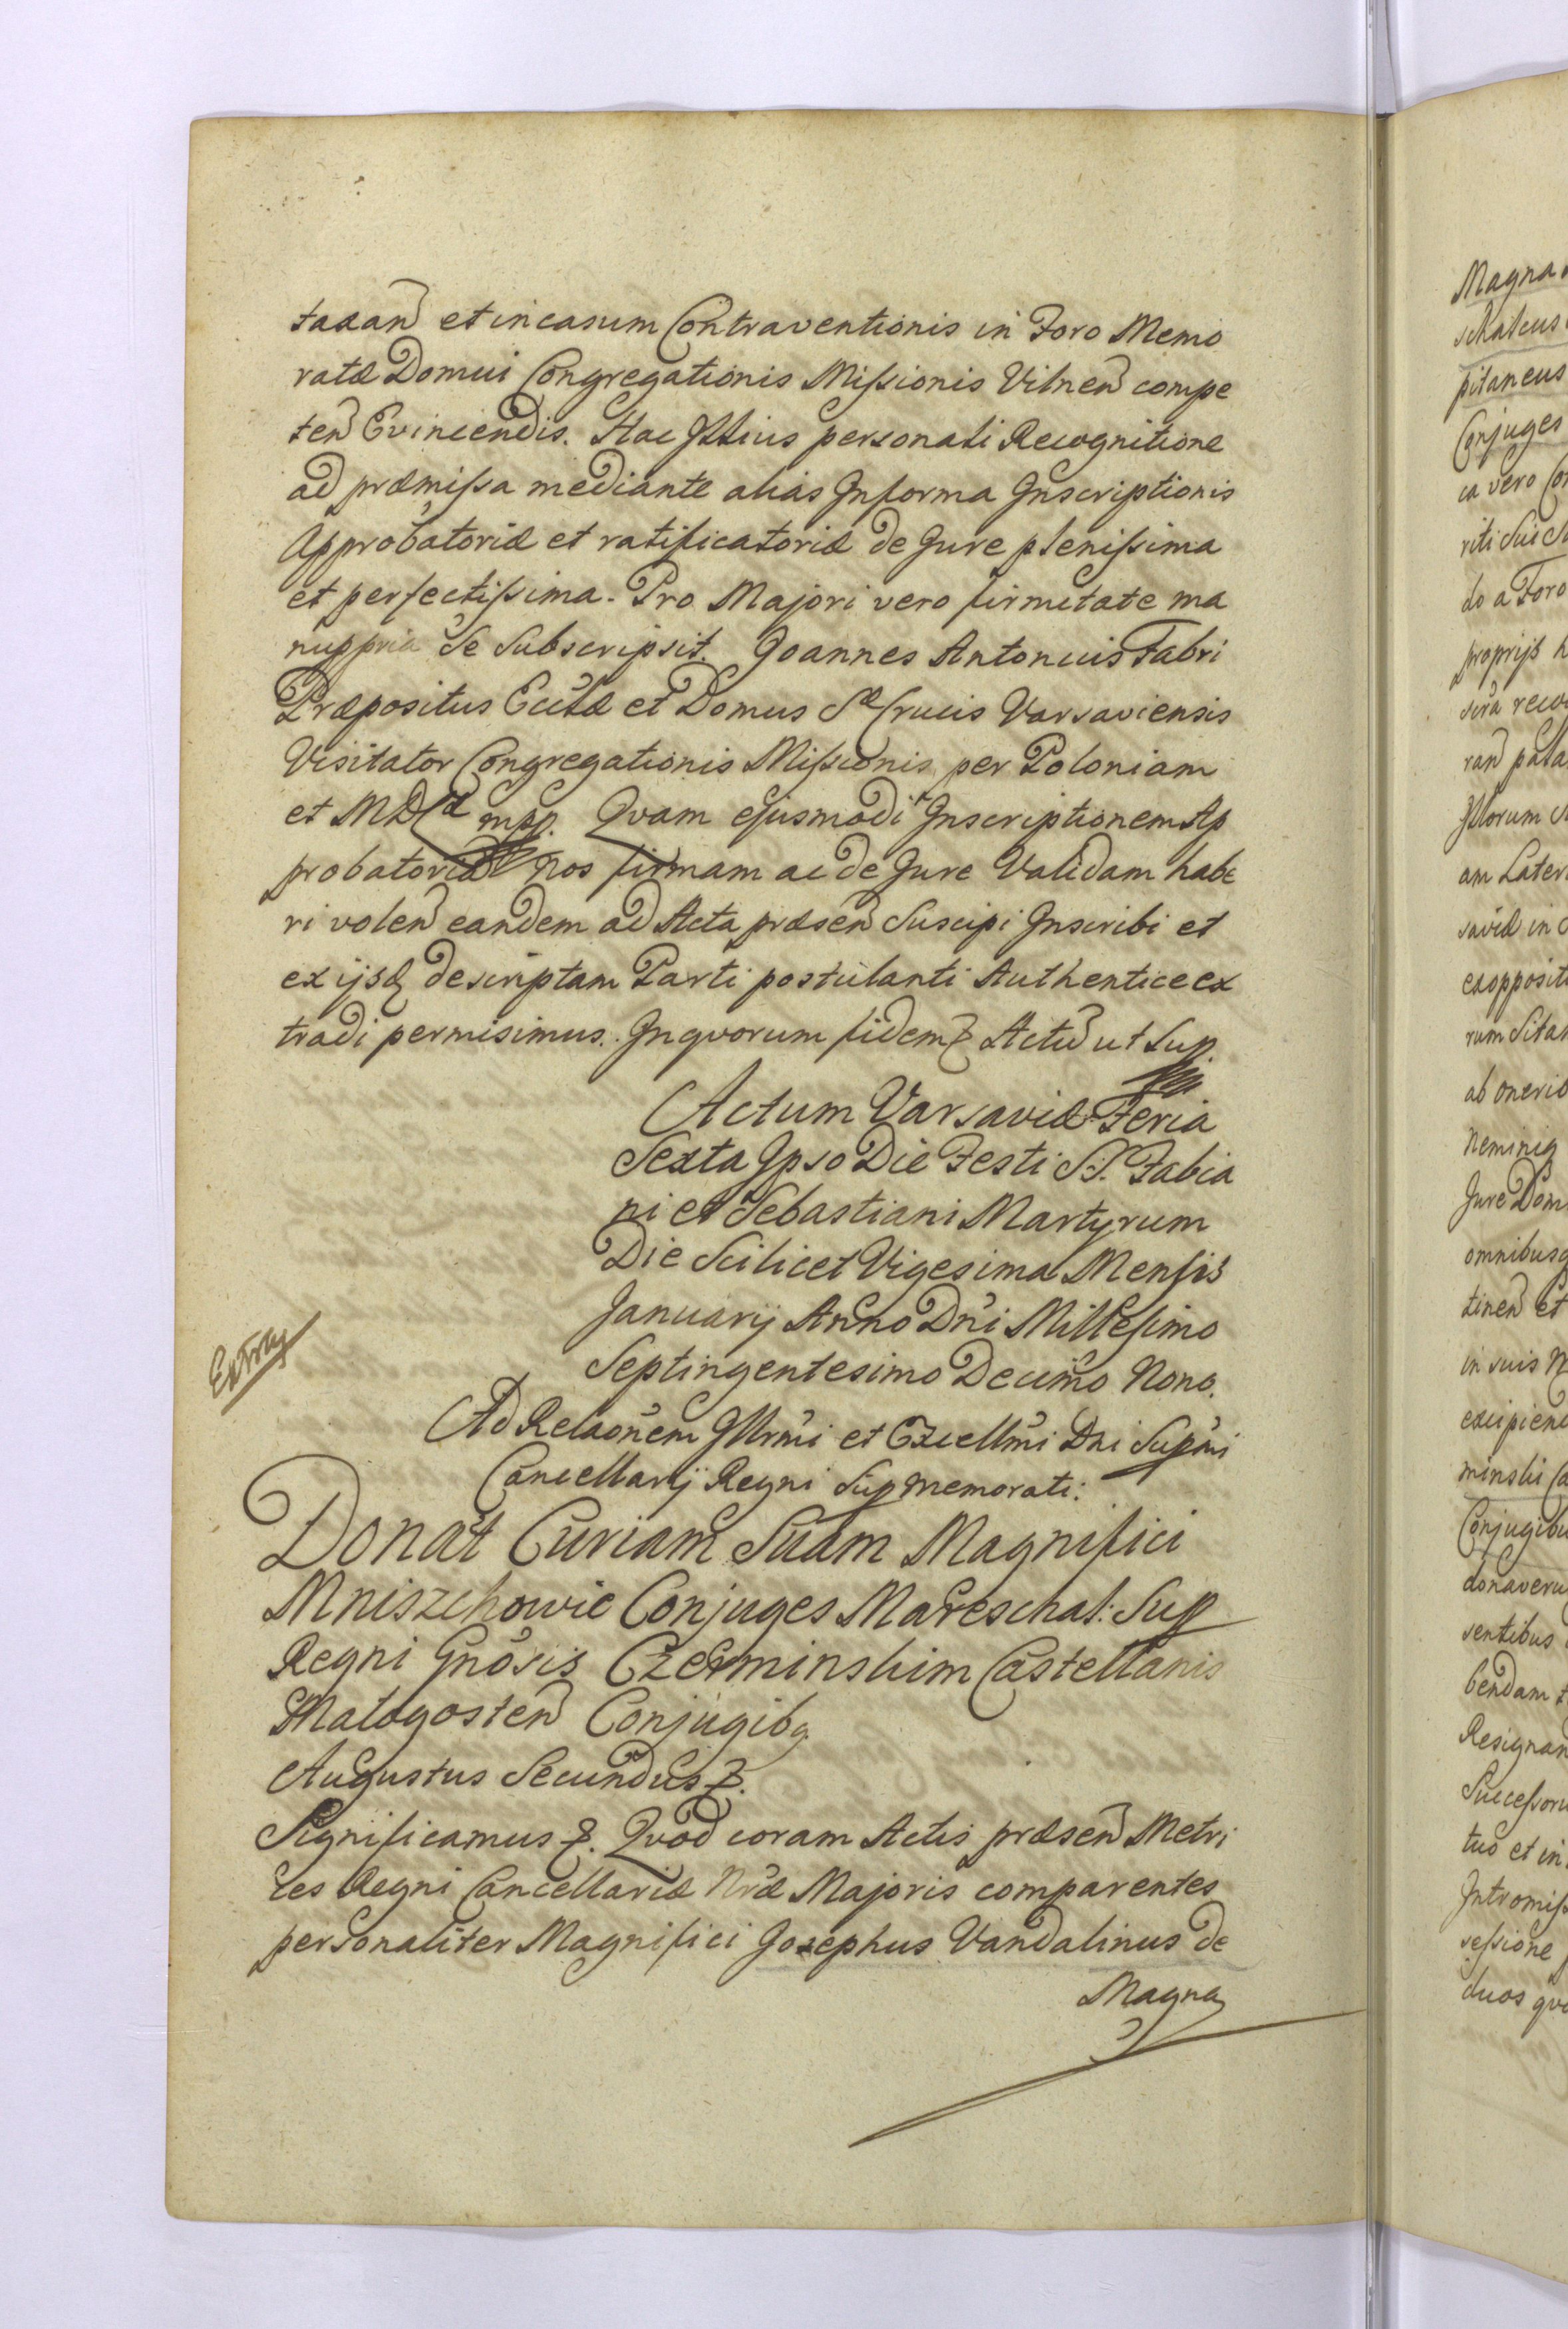 taxan et in casum Contraventionis in Foro Memo
ratæ Domui Congregationis Missionis Vilnen compe
ten Evincendis. Hac Illius personali Recognitione
ad præmissa mediante alias In forma Inscriptionis
Approbatoriæ et ratificatoriæ de Jure plenissima
et perfectissima. Pro Majori vero firmitate ma
nuppria Se Subscripsit. Joannes Antonius Fabri
Præpositus Ecclæ et Domus Sæ Crucis Varsaviensis
Visitator Congregationis Missionis per Poloniam
et MDLæ mpp. Qvam ejusmodi Inscriptionem Ap
probatoriã nos firmam ac de Jure Validam habe
ri volen eandem ad Acta præsen Suscipi Inscribi et
ex ijsq descriptam Parti postulanti Authentice ex
tradi permisimus. In qvorum fidem & Actu ut Sup
Actum Varsaviæ Feria
Sexta Ipso Die Festi SS. Fabia
ni et Sebastiani Martyrum
Die Scilicet Vigesima Mensis
Januarij Anno Dni Millesimo
Septingentesimo Decimo Nono.
Extrad
Ad Relaonem Illrmi et Excellmi Dni Supmi
Cancellarij Regni Sup memorati:
Donat Curiam Suam Magnifici
Mniszchowie Conjuges Mareschal: Sup
Regni Gnosis Czerminskim Castellanis
Malogosten Conjugibq
Augustus Secundus &.
Significamus &. Qvod coram Actis præsen Metri
ces Regni Cancellariæ Nræ Majoris comparentes
personaliter Magnifici Josephus Vandalinus de
Magna
Magna
schalcus
pitaneus
Conjuges
ca vero Con
riti Sui
do a Foro
proprijs
ran pala
Illorum
am Later
saviæ in
ex opposit
rum Sitam
ab oneri
Jure Dom
omnibusq
tinen et
in suis
excipien
minski Ca
Conjugibu
donaveru
sentibus
bendam
Resignan
Successoru
tuo et in
Intromiss
sessione
duos qvo